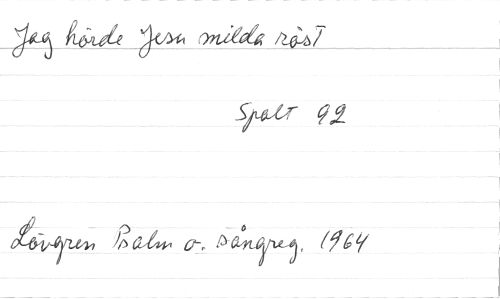 Jag hörde Jesu milda röst
Spalt 92
Lövgren Psalm o. sångreg. 1964